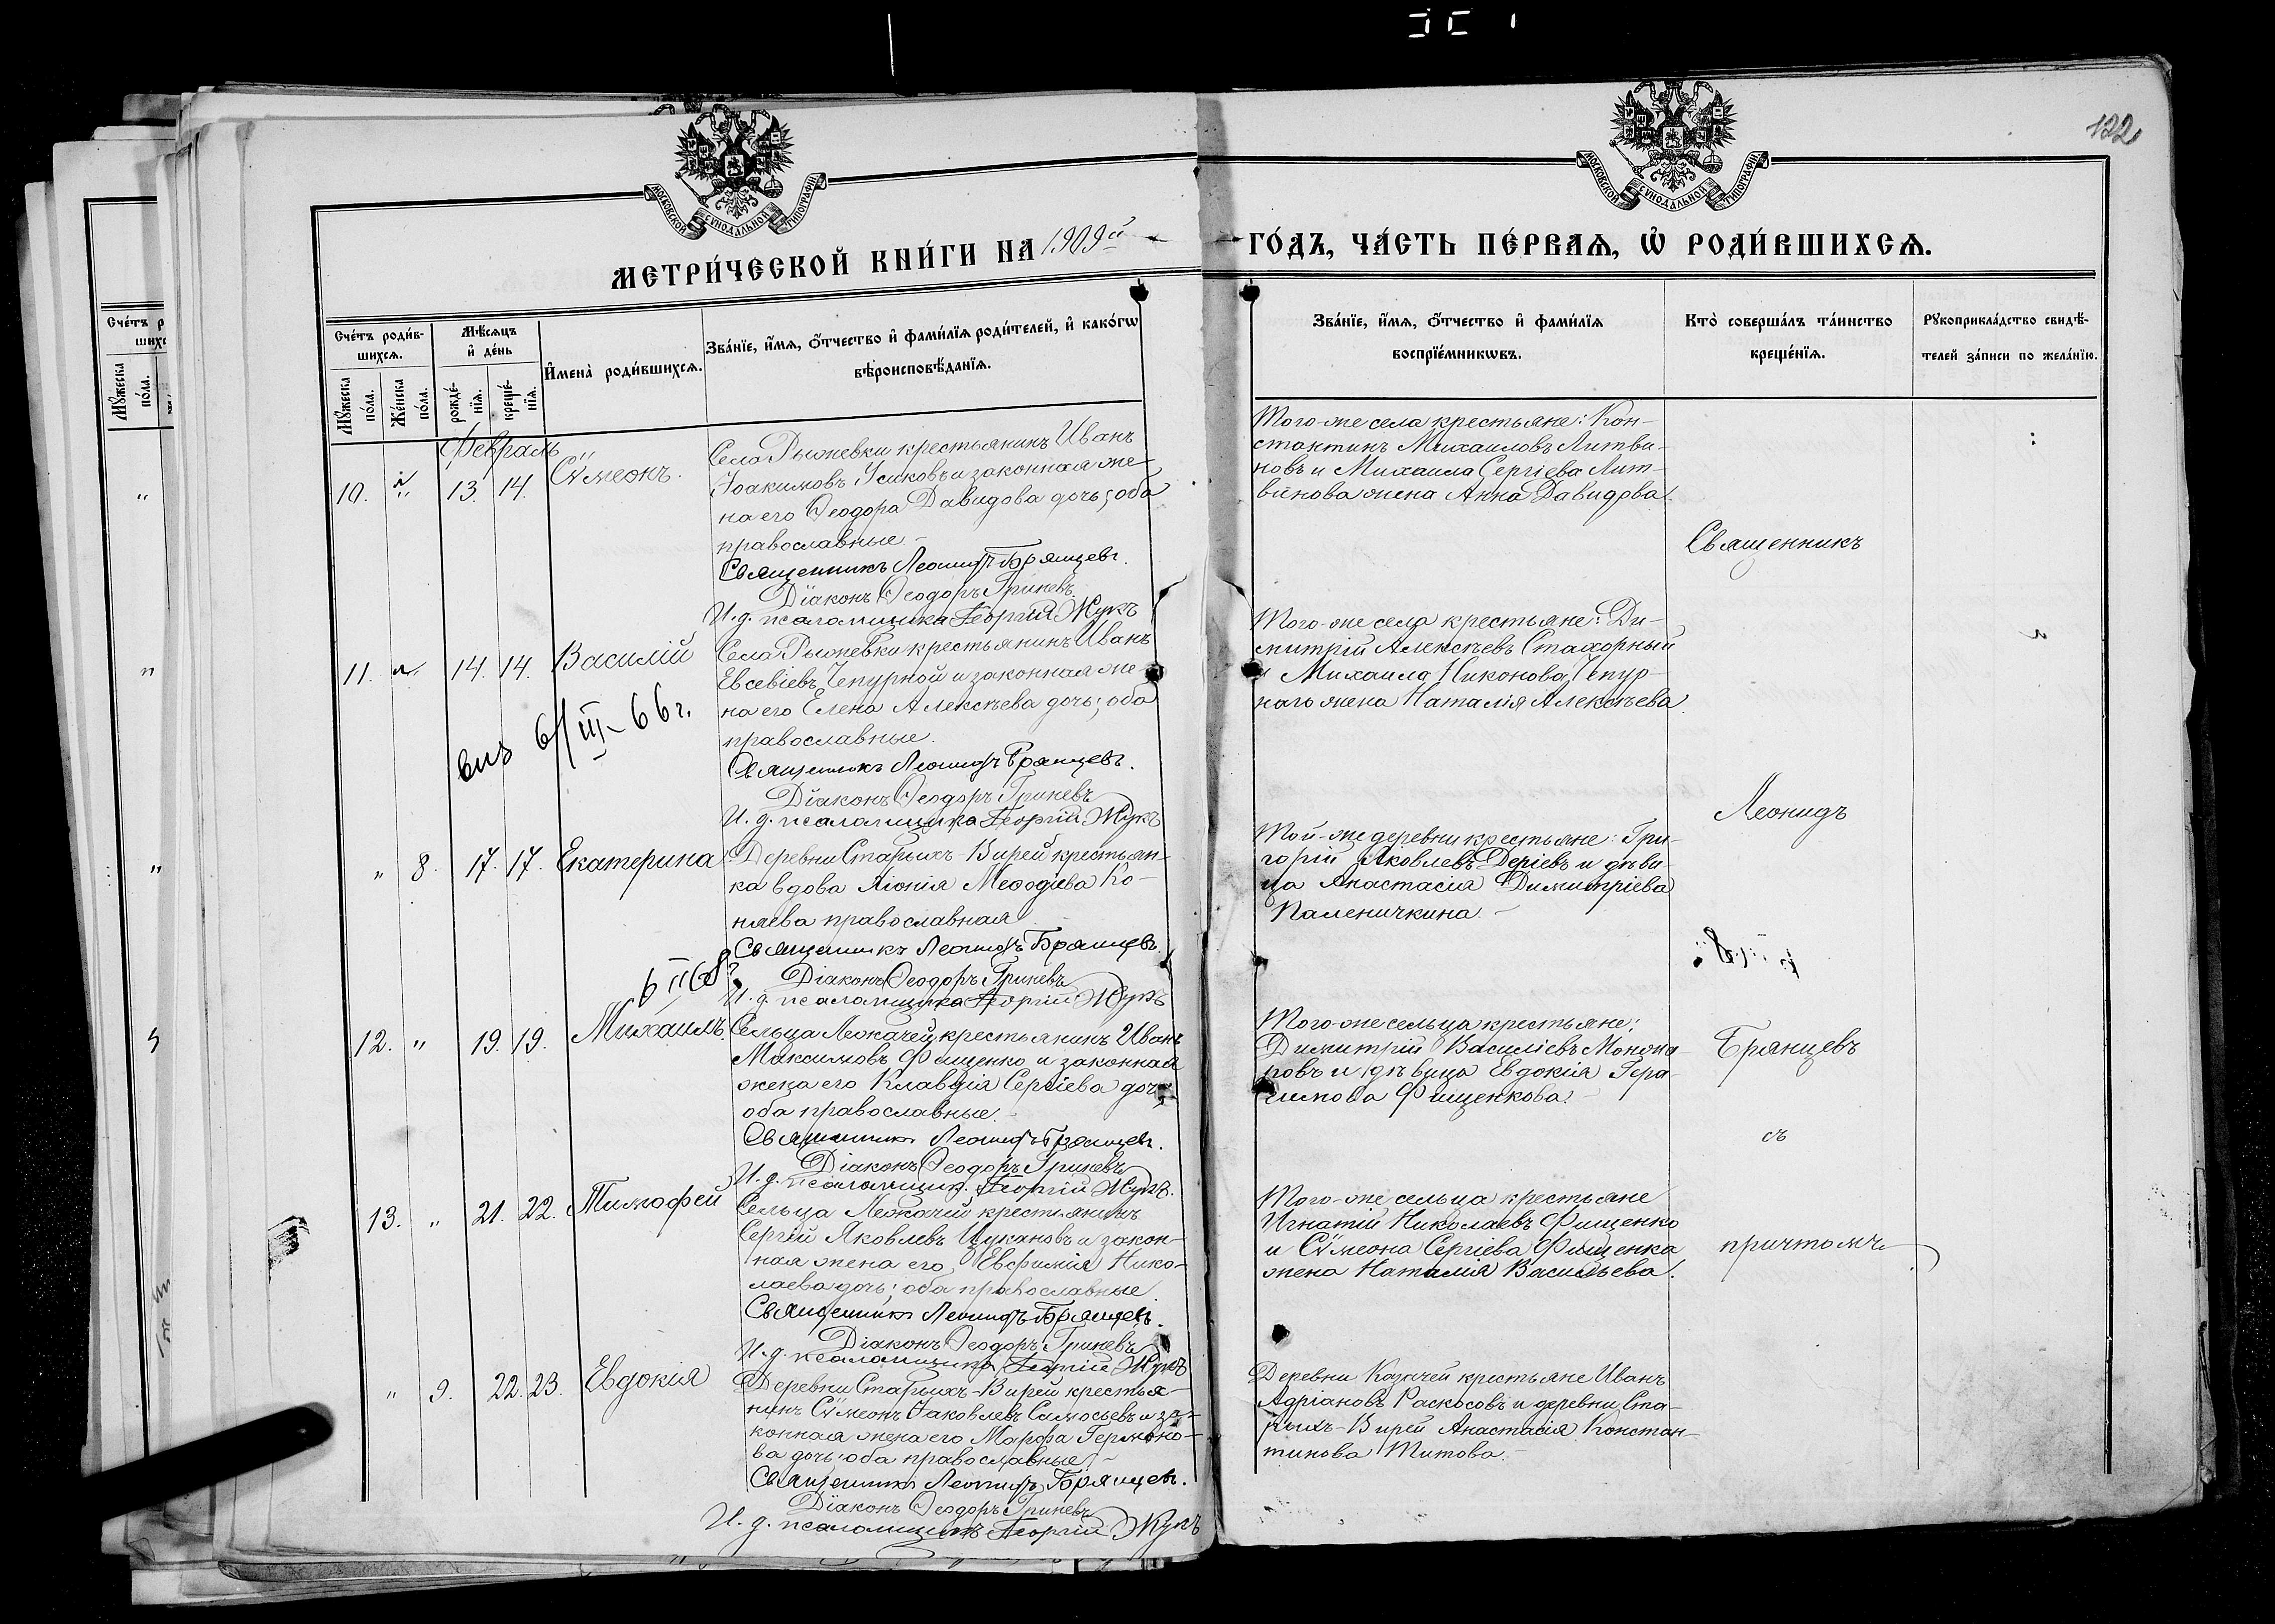 122
МОСКОВСКОЙ СѴНОДАЛЬНОЙ ТИПОГРАФІИ
МОСКОВСКОЙ СѴНОДАЛЬНОЙ ТИПОГРАФІИ
МЕТРИ́ЧЕСКОЙ КНИ́ГИ НА 1909й
ГО́ДЪ, ЧА́СТЬ ПЕ́РВАѦ, Ѡ РОДИ́ВШИХСѦ.
Сче́тъ роди́в-
шихсѧ.
Мꙋ́жеска
по́ла.
Же́нска
по́ла.
Мѣ́сѧцъ
и҆ де́нь
рожде́-
нїѧ.
креще́-
нїѧ.
И҆мена̀ роди́вшихсѧ.
Зва́нїе, и҆́мѧ, ѻ҆́тчество и҆ фами́лїѧ роди́телей, и҆ како́гѡ
вѣроисповѣ́данїѧ.
Зва́нїе, и҆́мѧ, ѻ҆́тчество и҆ фами́лїѧ
воспрїе́мникѡвъ.
Кто̀ соверша́лъ та́инство
креще́нїѧ.
Рꙋкоприкла́дство свидѣ́-
телей за́писи по жела́нїю.
Февраль
10. " 13. 14. Сѵмеонъ.
Села Рыжевки крестьянинъ Иванъ
Іоакимовъ Усиковъ и законная же-
на его Ѳеодора Давидова дочь; оба
православные
Священникъ Леонидъ Брянцевъ.
Діаконъ Ѳеодоръ Гриневъ
И. д. псаломщика Георгій Жукъ
Того-же села крестьяне: Кон-
стантинъ Михаиловъ Литви-
новъ и Михаила Сергіева Лит-
винова жена Анна Давидова.
11. " 14. 14. Василій
Села Рыжевки крестьянинъ Иванъ
Евсевіевъ Чепурной и законная же-
на его Елена Алексѣева дочь; оба
православные.
Священникъ Леонидъ Брянцевъ.
Діаконъ Ѳеодоръ Гриневъ
И. д. псаломщика Георгій Жукъ
6/III-66г.
Того-же села крестьяне: Ди-
митрій Алексѣевъ Стахорный
и Михаила Никонова Чепур-
наго жена Наталія Алексѣева.
" 8. 17. 17. Екатерина
Деревни Старыхъ-Вирей крестьян-
ка вдова Хіонія Меѳодіева Ко-
няева православная
Священникъ Леонидъ Брянцевъ.
Діаконъ Ѳеодоръ Гриневъ
И. д. псаломщика Георгій Жукъ
Той-же деревни крестьяне: Гри-
горій Яковлевъ Деріевъ и дѣви-
ца Анастасія Димитріева
Паленичкина.
12. " 19. 19. Михаилъ.
Сельца Лежачей крестьянинъ Иванъ
Максимовъ Фищенко и законная
жена его Клавдія Сергіева дочь;
оба православные.
Священникъ Леонидъ Брянцевъ.
Діаконъ Ѳеодоръ Гриневъ
И. д. псаломщик. Георгій Жукъ.
Того-же сельца крестьяне:
Димитрій Василіевъ
и дѣвица Евдокія Гера-
симова Фищенкова.
13. " 21. 22. Тимофей
Сельца Лежачей крестьянинъ
Сергій Яковлевъ Цукановъ и закон-
ная жена его Евфимія Нико-
лаева дочь; оба православные
Священникъ Леонидъ Брянцевъ.
Діаконъ Ѳеодоръ Гриневъ
И. д. псаломщика Георгій Жукъ
Того-же сельца крестьяне
Игнатій Николаевъ Фищенко
и Сѵмеона Сергіева Фищенка
жена Наталія Васильева.
" 9. 22. 23. Евдокія
Деревни Старыхъ-Вирей крестья-
нинъ Сѵмеонъ Іаковлевъ и за-
конная жена его Марфа
ва дочь; оба православные
Священникъ Леонидъ Брянцевъ.
Діаконъ Ѳеодоръ Гриневъ
И. д. псаломщикъ Георгій Жукъ
Деревни Казачей крестьяне Иванъ
Адріановъ Раскосовъ и деревни Ста-
рыхъ-Вирей Анастасія Констан-
тинова Титова.
Священникъ
Леонидъ
Брянцевъ
съ
причтомъ